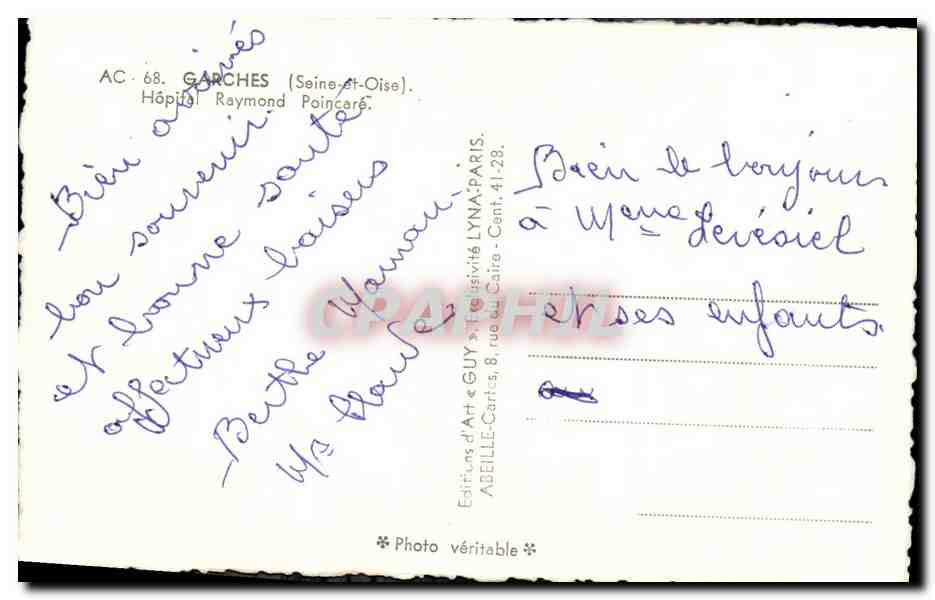 AC - 68. GARCHES (Seine-et-Oise).
Hôpital Raymond Poincaré.
Bien
bon souvenir.
et bonne santé
affectueux baisers
Berthe Maman
Bien le bonjour
à Mme
et ses enfants.
Editions d'Art « GUY ». Exclusivité LYNA-PARIS.
ABEILLE-Cartes, 8, rue du Caire - Cent. 41-28.
CPAPHIL
✻ Photo véritable ✻